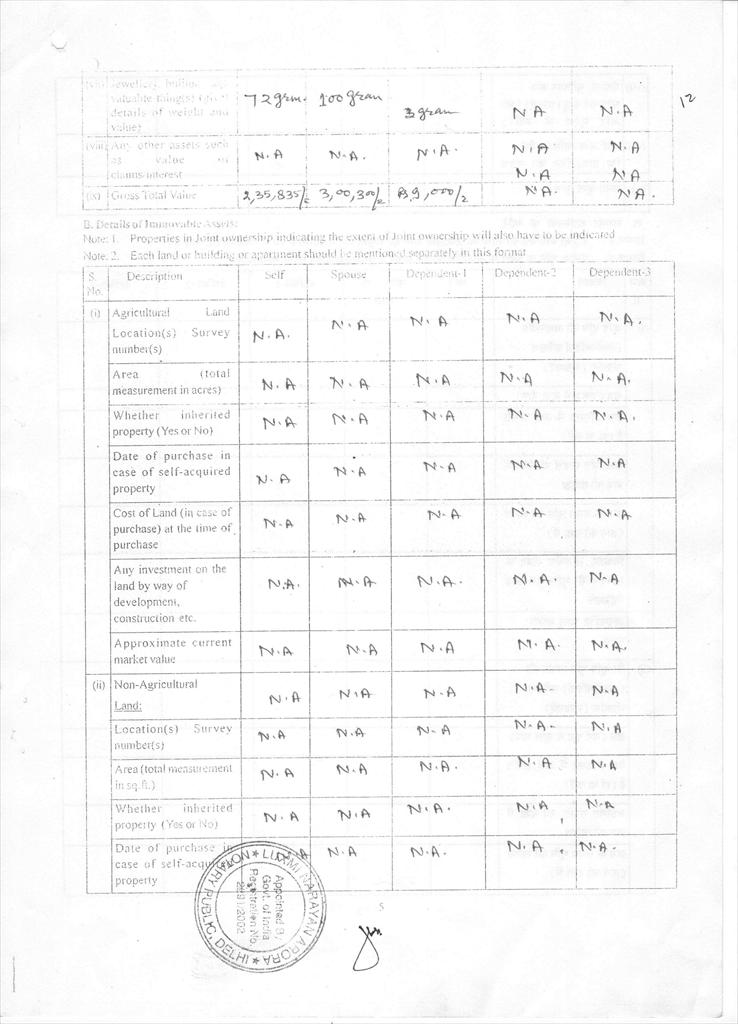 (vii) Jewellery, bullion and 72 grm. 100 gram 3 gram N A N.A 12
valuable thing(s) (give
details of weight and
value)
(viii) Any other assets such N.A N.A. N.A. N.A N.A
as value of
claims/interest N.A NA
(ix) Gross Total Value 2,35,835/- 3,00,300/- N.A. N.A.
B. Details of Immovable Assets:
Note: 1. Properties in Joint ownership indicating the extent of Joint ownership will also have to be indicated
Note: 2. Each land or building or apartment should be mentioned separately in this format
S. Description Self Spouse Dependent-1 Dependent-2 Dependent-3
No.
(i) Agricultural Land N.A N.A N.A N.A.
Location(s) Survey N.A.
number(s)
Area (total N.A N.A N.A N.A N.A.
measurement in acres)
Whether inherited N.A N.A N.A N.A N.A.
property (Yes or No)
Date of purchase in N.A N.A N.A N.A
case of self-acquired N.A
property
Cost of Land (in case of N.A N.A N.A N.A N.A
purchase) at the time of
purchase
Any investment on the N.A. N.A N.A. N.A. N.A
land by way of
development,
construction etc.
Approximate current N.A N.A N.A N.A. N.A.
market value
(ii) Non-Agricultural N.A N.A N.A N.A. N.A
Land:
Location(s) Survey N.A N.A N.A N.A. N.A
number(s)
Area (total measurement N.A N.A N.A. N.A N.A
in sq.ft.)
Whether inherited N.A N.A N.A. N.A N.A
property (Yes or No)
Date of purchase in N.A N.A. N.A. N.A.
case of self-acquired
property
5
★ LUXMI NARAYAN ARORA ★ NOTARY PUBLIC, DELHI
Appointed By
Govt. of India
Registration No.